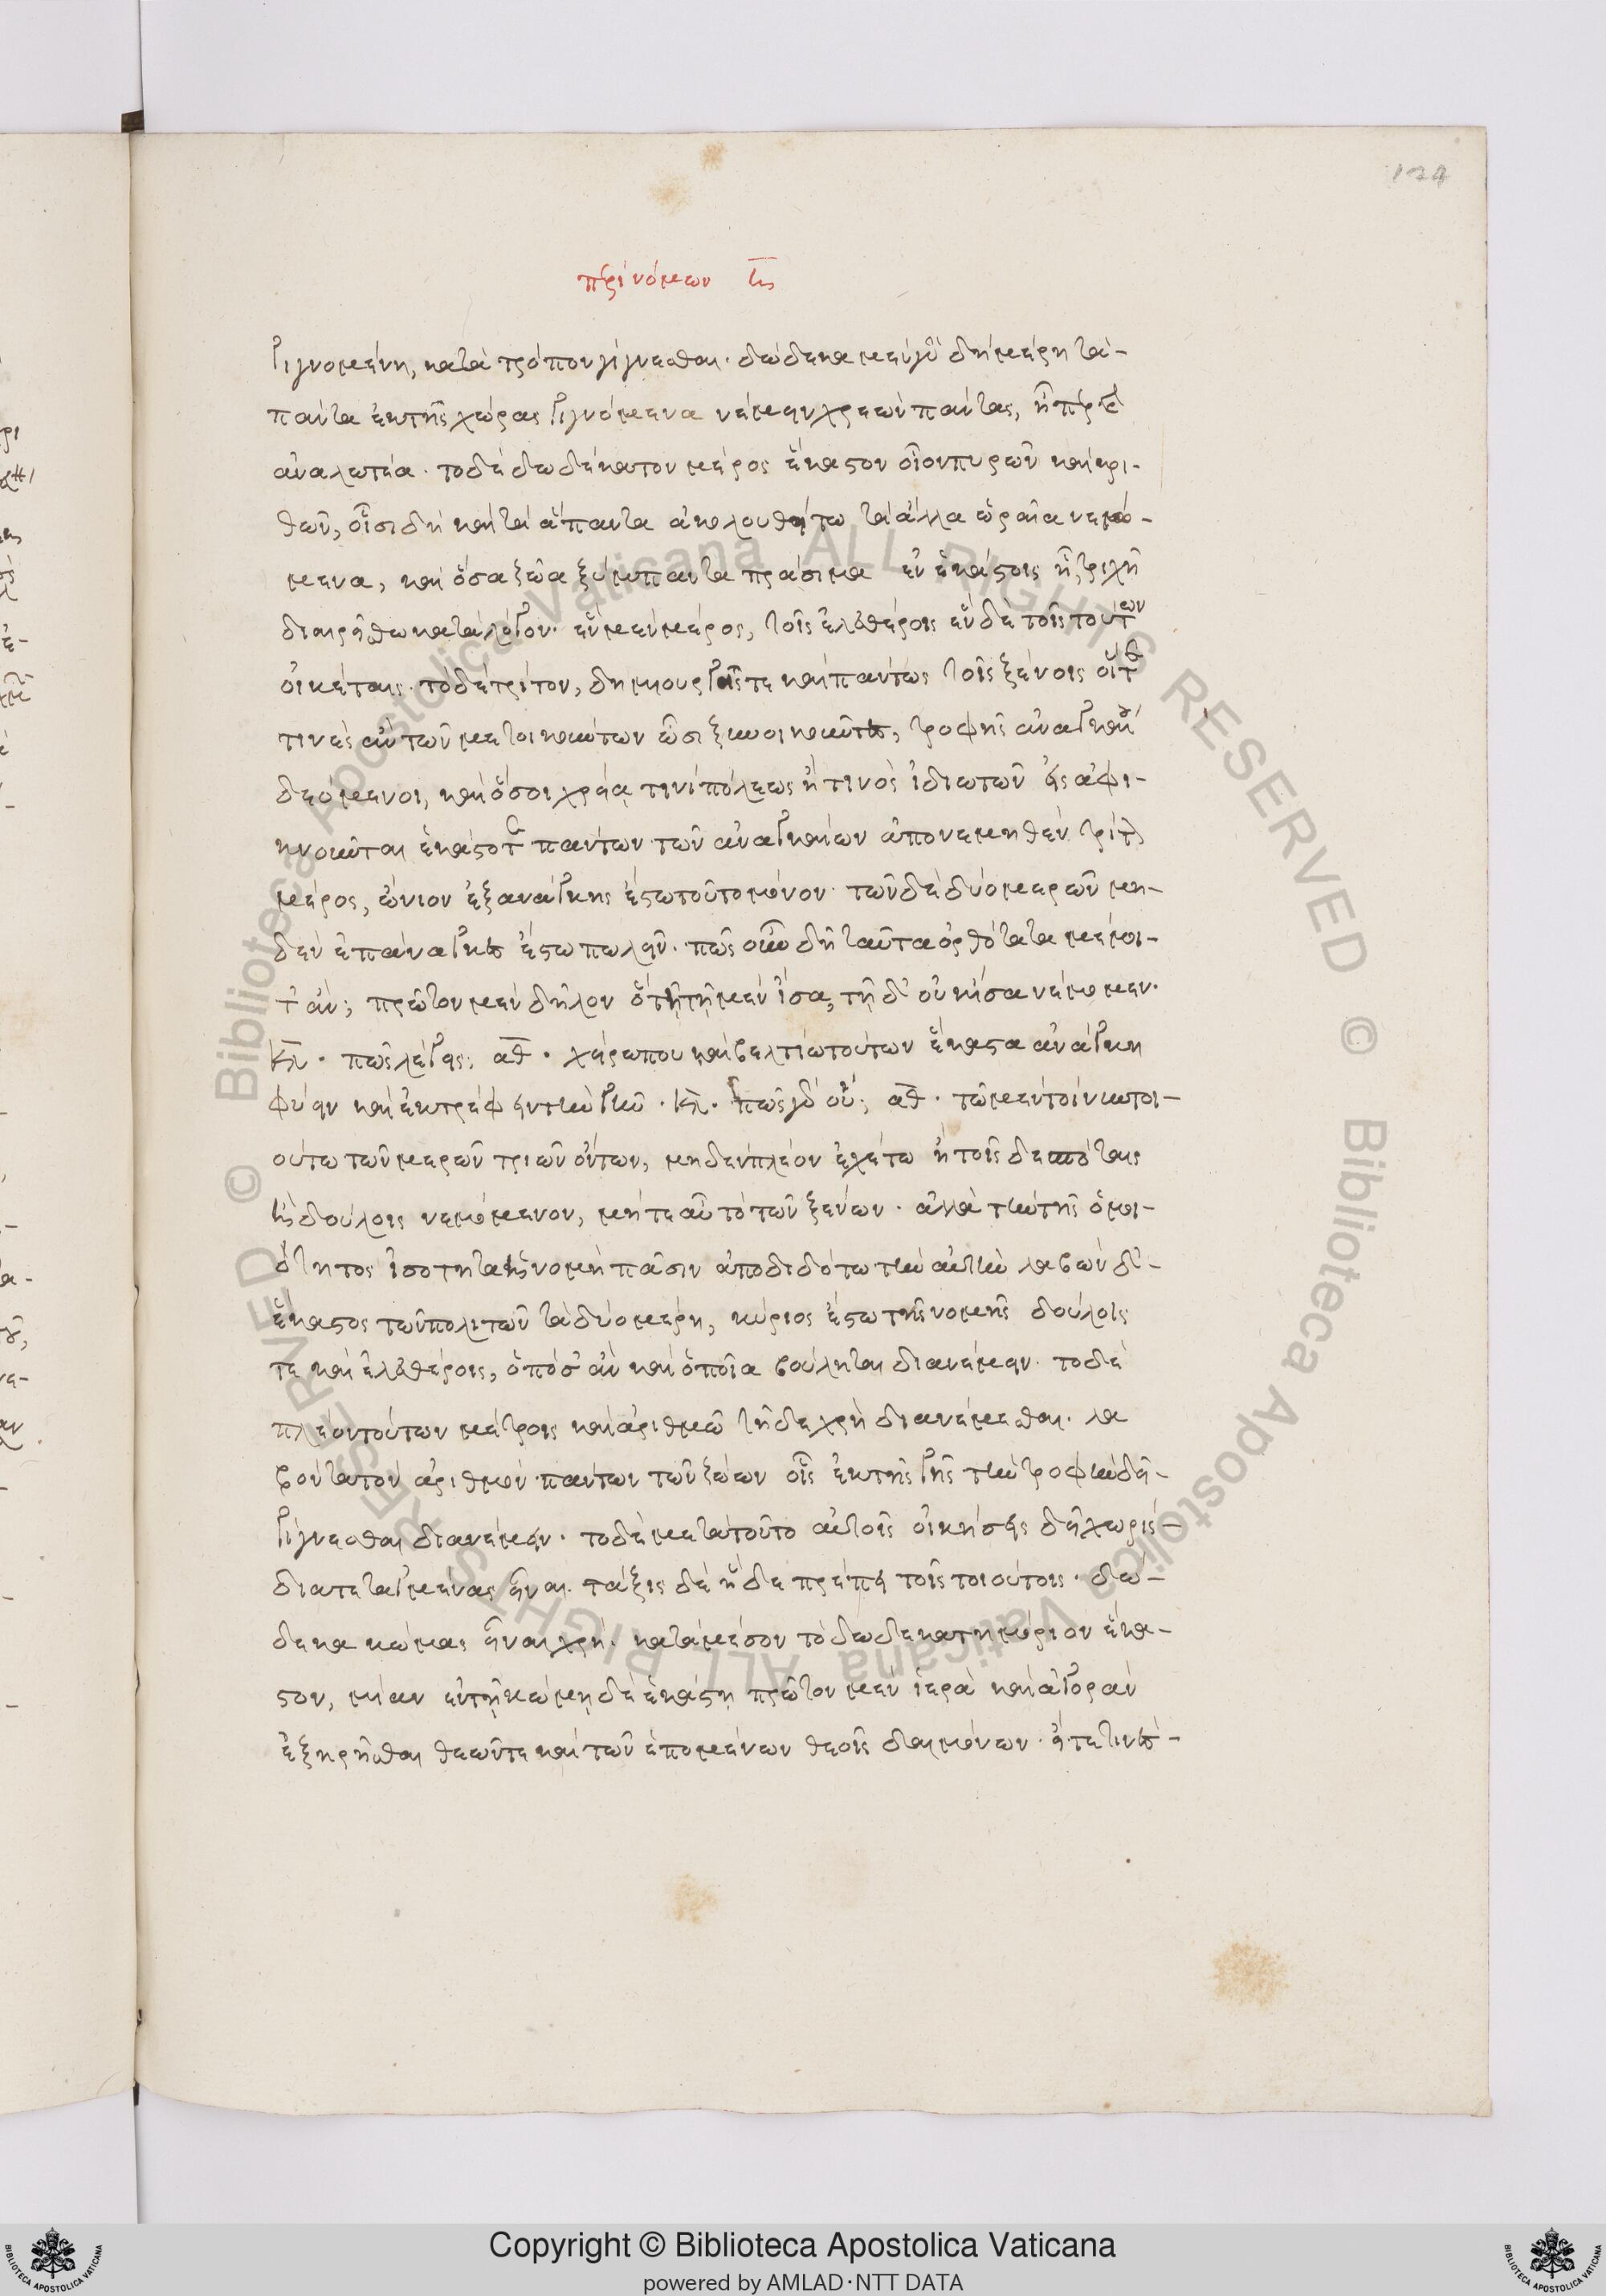 124
περὶ νόμων η
γιγνομένη, κατὰ τρόπον γίγνεσθαι· δώδεκα μὲν γὰρ δὴ μέρη τὰ-
πάντα ἐκ τῆς χώρας γιγνόμενα νέμειν χρεὼν πάντας, ἧπερ καὶ
ἀναλωτέα· τὸ δὲ δωδέκατον μέρος ἕκαστον οἷον πυρῶν καὶ κρι-
θῶν, οἷσι δὴ καὶ τὰ ἅπαντα ἀκολουθείτω τὰ ἄλλα ὡραῖα νεμό-
μενα, καὶ ὅσα ζῶα ξύμπαντα πράσιμα ἐν ἑκάστοις ἦ, τριχῆ
διαιρείσθω κατὰ λόγον· ἓν μὲν μέρος, τοῖς ἐλευθέροις ἓν δὲ τοῖς τούτων
οἰκέταις· τὸ δὲ τρίτον, δημιουργοῖς τε καὶ πάντως τοῖς ξένοις οἵτε
τινὲς ἂν τῶν μετοικούντων ὦσι ξυνοικοῦντες, τροφῆς ἀναγκαίου
δεόμενοι, καὶ ὅσοι χρείᾳ τινὶ πόλεως ἤ τινος ἰδιωτῶν εἰσαφι-
κνοῦνται ἑκάστοτε πάντων τῶν ἀναγκαίων ἀπονεμηθὲν τρίτον
μέρος, ὤνιον ἐξ ἀνάγκης ἔστω τοῦτο μόνον· τῶν δὲ δύο μερῶν μη-
δὲν ἐπάναγκες ἔστω πωλεῖν· πῶς οὖν δὴ ταῦτα ὀρθότατα νέμοι-
τ' ἄν; πρῶτον μὲν δῆλον ὅτι τῇ μὲν ἴσα, τῇ δ' οὐκ ἴσα νέμομεν·
κλ· πῶς λέγεις; αθ· χείρω που καὶ βελτίω τούτων ἕκαστα ἀνάγκη
φύειν καὶ ἐκτρέφειν τὴν γῆν· κλ· πῶς γὰρ οὔ; αθ· τῶ μὲν τοίνυν τοι-
ούτω τῶν μερῶν τριῶν ὄντων, μηδὲν πλέον ἐχέτω ἢ τοῖς δεσπόταις
ἢ δούλοις νεμόμενον, μήτε αὖ τὸ τῶν ξένων· ἀλλὰ τὴν τῆς ὁμοι-
ότητος ἰσότητα ἡ νομὴ πᾶσιν ἀποδιδότω τὴν αὐτήν λαβὼν δ'-
ἕκαστος τῶν πολιτῶν τὰ δύο μέρη, κύριος ἔστω τῆς νομῆς δούλοις
τε καὶ ἐλευθέροις, ὁπόσ' ἂν καὶ ὁποῖα βούληται διανέμειν· τὸ δὲ
πλέον τούτων μέτροις καὶ ἀριθμῶ τῆδε χρὴ διανέμεσθαι· λα
βόντα τὸν ἀριθμὸν πάντων τῶν ζώων οἷς ἐκ τῆς γῆς τὴν τροφὴν δεῖ-
γίγνεσθαι διανέμειν· τὸ δὲ μετὰ τοῦτο αὐτοῖς οἰκήσεις δεῖ χωρὶς-
διατεταγμένας εἶναι· τάξις δὲ ἥδε πρέπει τοῖς τοιούτοις· δώ-
δεκα κώμας εἶναι χρή· κατὰ μέσον τὸ δωδεκατημόριον ἕκα-
στον, μίαν ἐν τῇ κώμῃ δὲ ἑκάστῃ πρῶτον μὲν ἱερὰ καὶ ἀγορὰν
ἐξῃρῆσθαι θεῶν τε καὶ τῶν ἑπομένων θεοῖς δαιμόνων· εἴτε τινὲς-
© Biblioteca Apostolica Vaticana ALL RIGHTS RESERVED
© Biblioteca Apostolica Vaticana ALL RIGHTS RESERVED
Copyright © Biblioteca Apostolica Vaticana
powered by AMLAD·NTT DATA
BIBLIOTECA APOSTOLICA VATICANA
BIBLIOTECA APOSTOLICA VATICANA